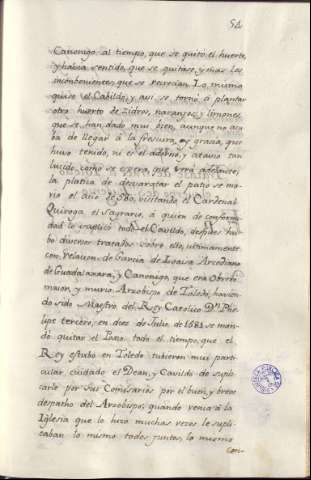 54
Canonigo al tiempo, que se quitó el huerto,
y havia sentido, que se quitase, y mas los
inconbenientes, que se recrecian. Lo mismo
quiso el Cabildo, y assi se tornò à plantar
otro huerto de zidros, naranjos, y limones,
que se han dado mui bien, aunque no aca
ba de llegar à la frescura, y gracia, que
huvo tenido, ni es el adorno, y atavio tan
lucido, como se espera, que serà adelante:
la platica de desvaratar el patio se mo
viò el año de 580, visitando el Cardenal
Quiroga el sagrario, à quien de conformi
dad lo suplicò todo el Cavildo, despues hu
bo diversos tratados sobre ello, ultimamente
con relacion de Garcia de Loaisa Arcediano
de Guadalaxara, y Canonigo, que era Obrero
maior, y murio Arzobispo de Toledo, havien
do sido Maestro del Rey Catolico Dn. Phe
lipe tercero, en diez de Julio de 1681 se man
dò quitar el Pozo. todo el tiempo, que el
Rey estubo en Toledo tubieron mui parti
cular cuidado el Dean, y Cavildo de supli
carle por sus Comisarios por el buen, y breve
despacho del Arzobispo; quando venia à la
Iglesia que lo hizo muchas vezes le supli
caban lo mismo todos juntos, lo mismo